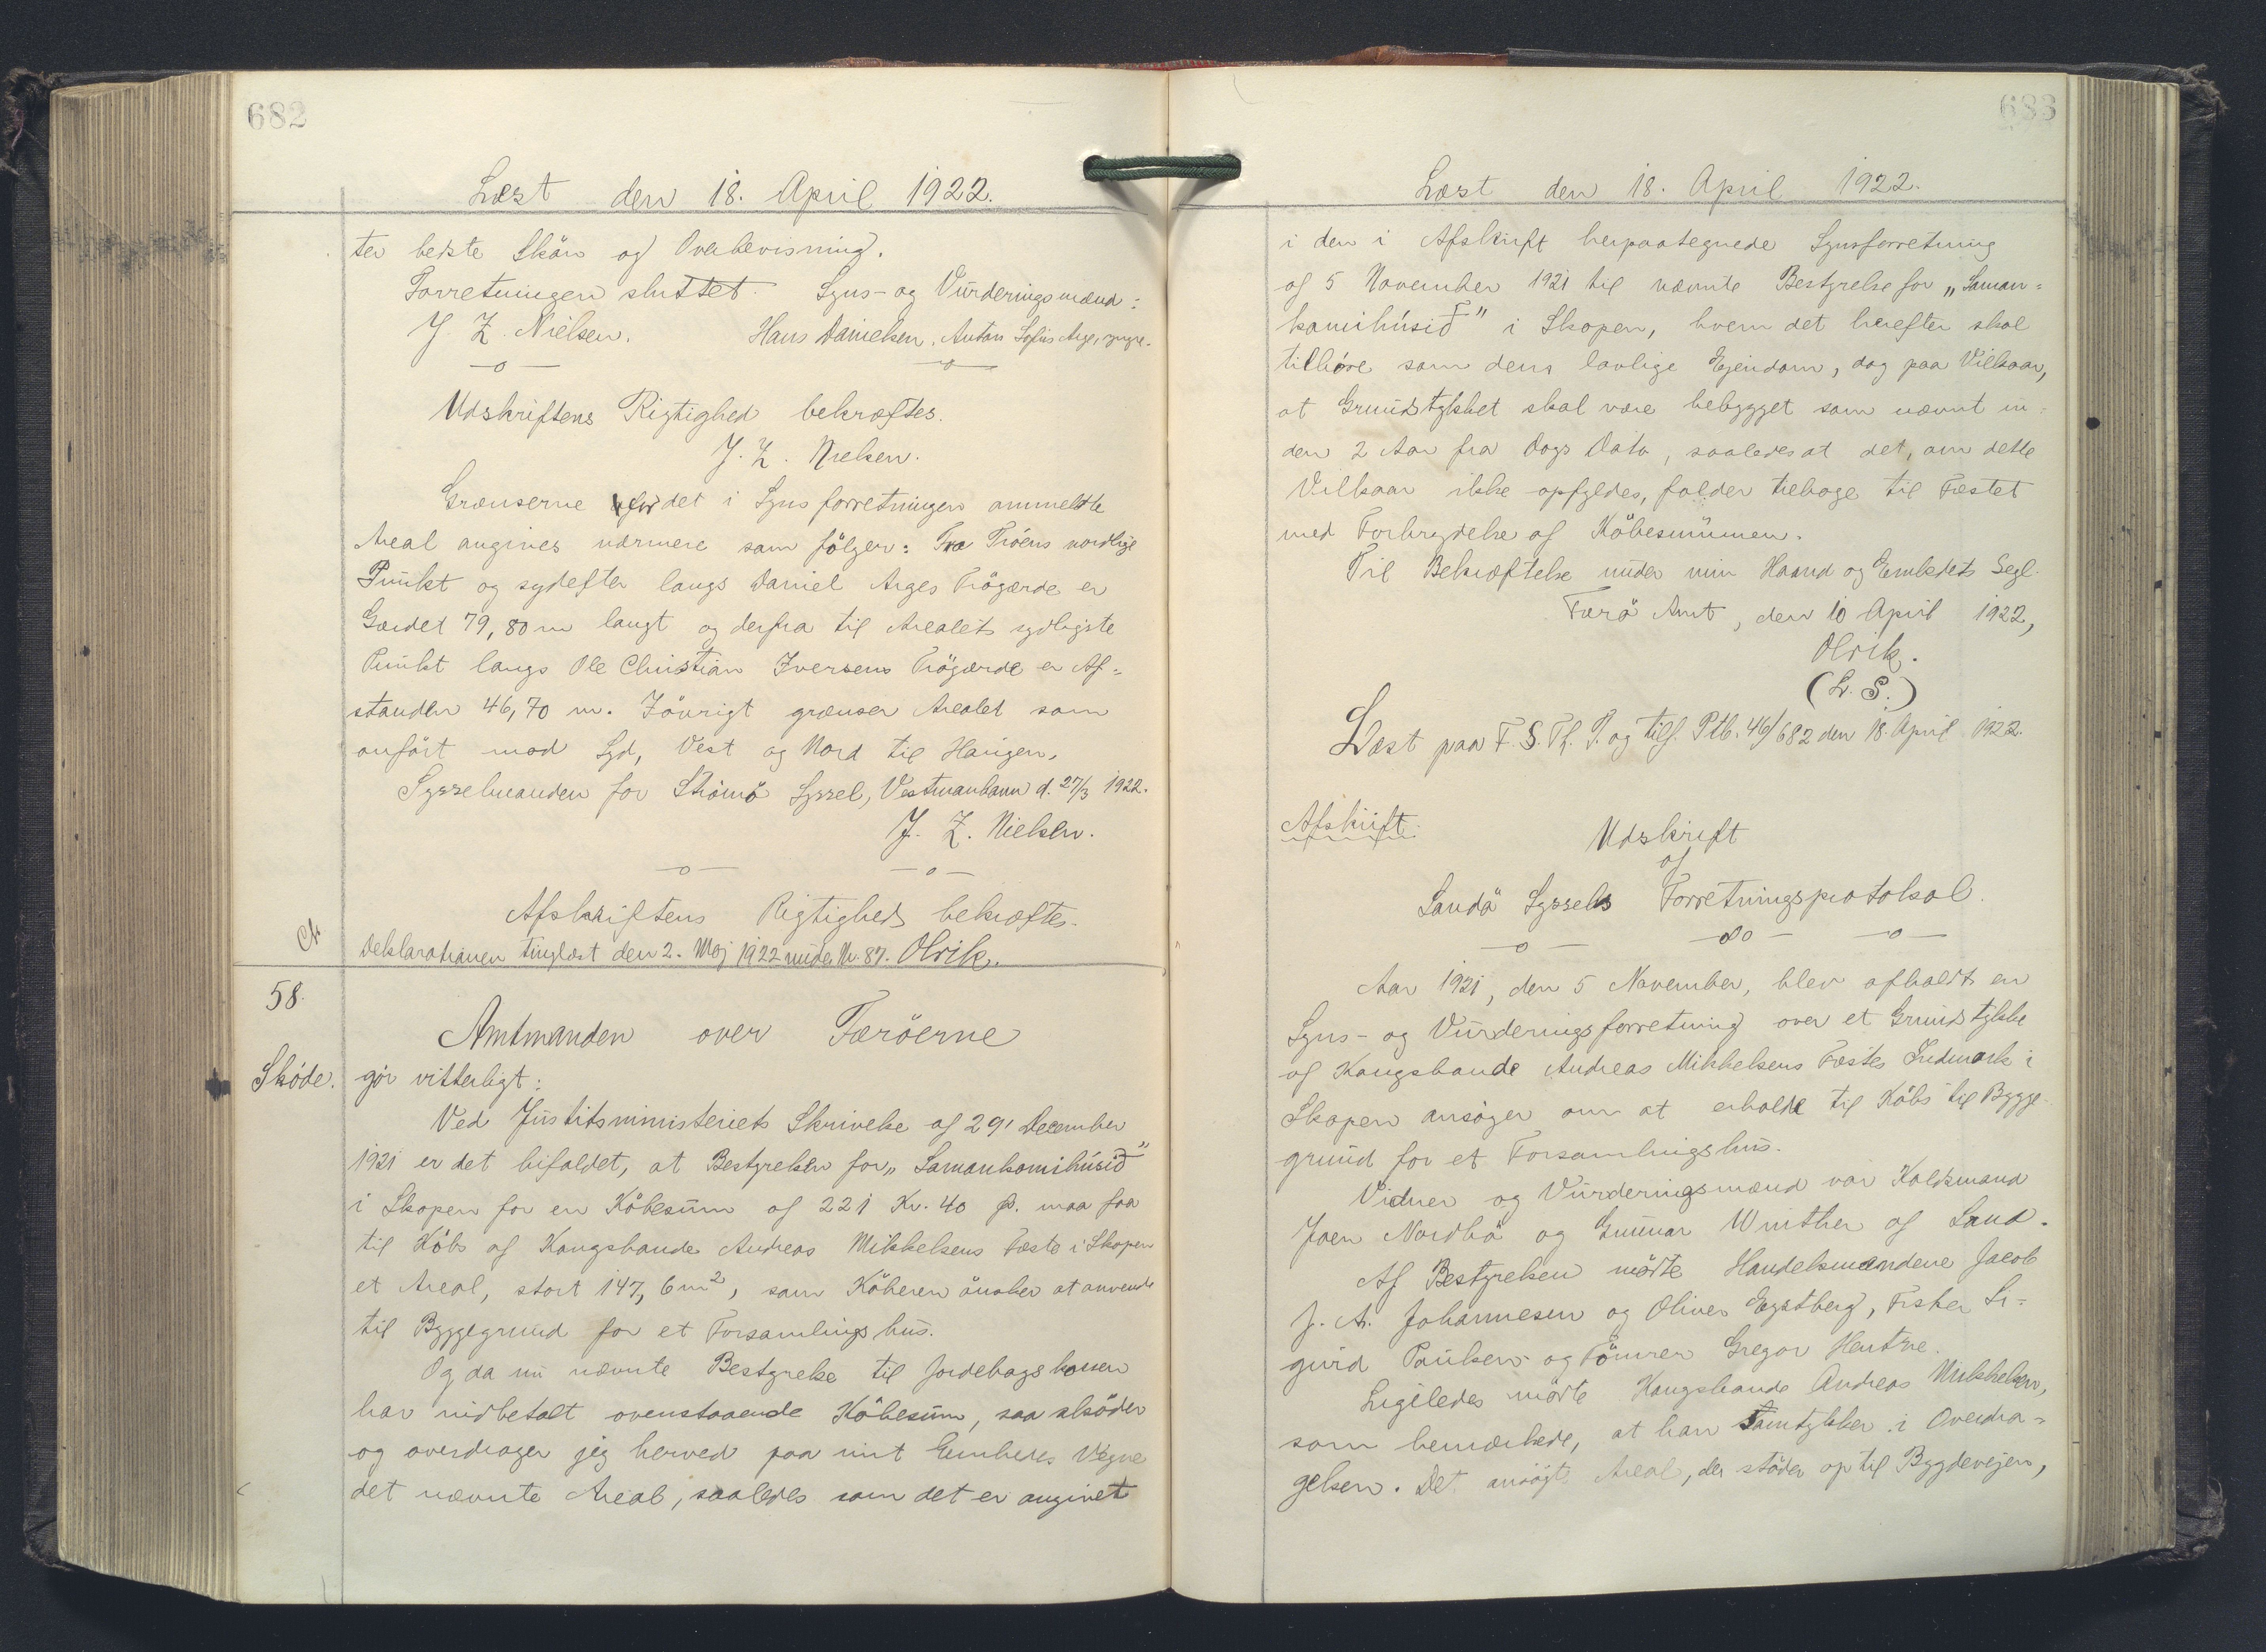 682
Læst den 18. April 1922.
ter bedste Skön og Overbevisning.
Forretningen sluttet. Syns- og Vurderingsmænd:
J. Z. Nielsen. Hans Danielsen. Anton Sofus Arge,
Udskriftens Rigtighed bekræftes.
J. Z. Nielsen.
Grænserne for det i Synsforretningen ommeldte
Areal angives nærmere som fölger: Fra Tröens nordlige
Punkt og sydefter langs Daniel Arges Trögærde er
Gærdet 79,80 m langt og derfra til Arealets sydligste
Punkt langs Ole Christian Iversens Trögærde er Af=
standen 46,70 m. Iövrigt grænser Arealet som
anfört mod Syd, Vest og Nord til Haugen.
Sysselmanden for Strömö Syssel, Vestmanhavn d. 27/3 1922.
J. Z. Nielsen.
Afskriftens Rigtighed bekræftes.
Deklarationen tinglæst den 2. Maj 1922 under Nr. 87. Olrik.
58.
Amtmanden over Færöerne
Sköde. gör vitterligt:
Ved Justitsministeriets Skrivelse af 29' December
1921 er det bifaldet, at Bestyrelsen for „Samankomihúsið"
i Skopen for en Köbesum af 221 Kr. 40 Ø. maa faa
til Köbs af Kongsbonde Andreas Mikkelsens Fæste i Skopen
et Areal, stort 147,6 m², som Köberen önsker at anvende
til Byggegrund for et Forsamlingshus.
Og da nu nævnte Bestyrelse til Jordebogskassen
har indbetalt ovenstaaende Köbesum, saa sköder
og overdrager jeg herved paa mit Embedes Vegne
det nævnte Areal, saaledes som det er angivet
683
Læst den 18. April 1922.
i den i Afskrift herpaategnede Synsforretning
af 5 November 1921 til nævnte Bestyrelse for „Saman=
komihúsið" i Skopen, hvem det herefter skal
tilhöre som dens lovlige Ejendom, dog paa Vilkaar,
at Grundstykket skal være bebygget som nævnt in=
den 2 Aar fra Dags Dato, saaledes at det, om dette
Vilkaar ikke opfyldes, falder tilbage til Fæstet
med Forbrydelse af Köbesummen.
Til Bekræftelse under min Haand og Embedets Segl.
Færö Amt, den 10 April 1922,
Olrik.
(L. S.)
Læst paa F. S. Th. T. og tilf. Ptb. 46/682 den 18. April 1922.
Afskrift.
Udskrift
af
Sandö Syssels Forretningsprotokol.
Aar 1921, den 5 November, blev afholdt en
Syns- og Vurderingsforretning over et Grundstykke
af Kongsbonde Andreas Mikkelsens Fæstes Indmark i
Skopen ansöger om at erholde til Köbs til Bygge-
grund for et Forsamlingshus.
Vidner og Vurderingsmænd var Kaldsmand
Joen Nordbö og Gunnar Winther af Sand.
Af Bestyrelsen mödte Handelsmændene Jacob
J. A. Johannesen og Oliver Egstberg, Fisker Si=
gurd Poulsen og Tömrer Gregor Hentze.
Ligeledes mödte Kongsbonde Andreas Mikkelsen,
som bemærkede, at han samtykker i Overdra=
gelsen. Det ansögt Areal, der stöder op til Bygdevejen,